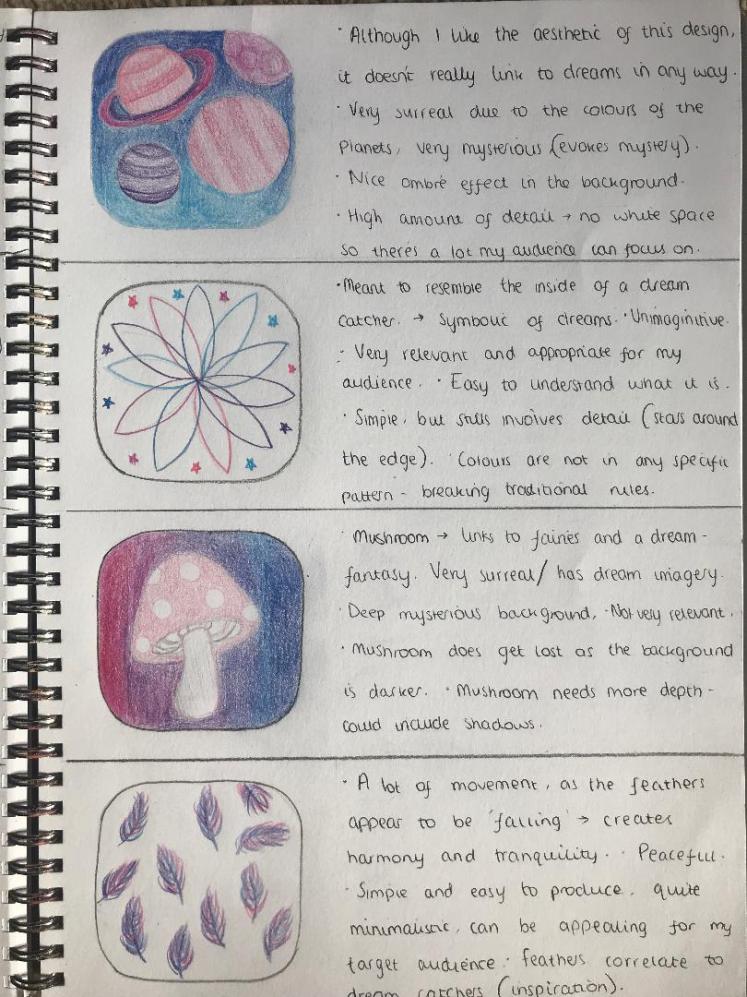 · Although I like the aesthetic of this design,
it doesn't really link to dreams in any way.
· Very surreal due to the colours of the
Planets, very mysterious (evokes mystery).
· Nice ombré effect in the background.
· High amount of detail → no white space
so there's a lot my audience can focus on.
· Meant to resemble the inside of a dream
catcher. → Symbolic of dreams. · Unimaginitive.
· Very relevant and appropriate for my
audience. · Easy to understand what it is.
· Simple, but stills involves detail (stars around
the edge). · Colours are not in any specific
pattern - breaking traditional rules.
· Mushroom → links to fairies and a dream-
fantasy. Very surreal/ has dream imagery.
· Deep mysterious background, · Not very relevant.
· Mushroom does get lost as the background
is darker. · Mushroom needs more depth -
could include shadows.
· A lot of movement, as the feathers
appear to be 'falling' → creates
harmony and tranquility. · Peaceful.
· Simple and easy to produce, quite
minimalistic, can be appealing for my
target audience. · feathers correlate to
dream catchers (inspiration).